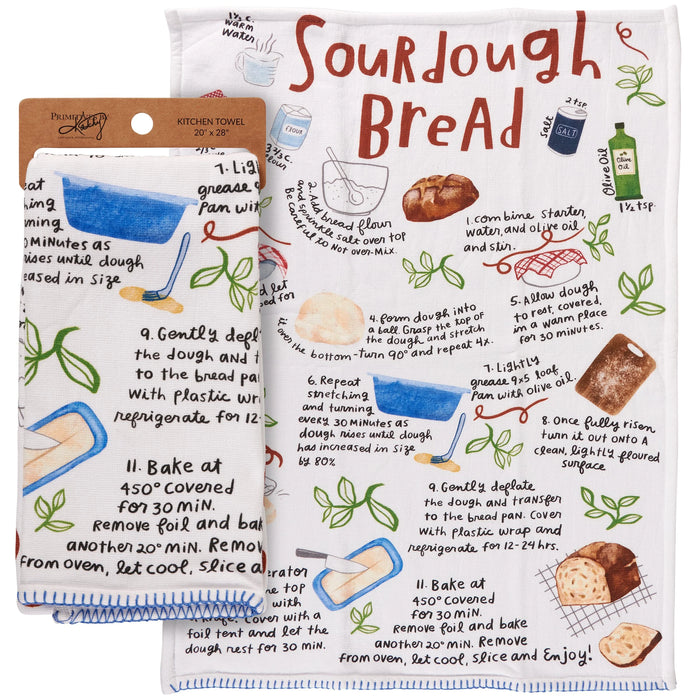 Sourdough
Bread
1½ c.
Warm
Water
FLOUR
3⅔ c.
Flour
2 tsp.
Salt
SALT
Olive Oil
Olive
Oil
1½ tsp.
1. Combine starter,
water, and olive oil
and stir.
2. Add bread flour
and sprinkle salt over top
Be careful to Not over-Mix.
and let
for
4. Form dough into
a ball. Grasp the top of
the dough and stretch
it over the bottom-turn 90° and repeat 4x.
5. Allow dough
to rest, covered,
in a warm place
for 30 minutes.
6. Repeat
stretching
and turning
every 30 Minutes as
dough rises until dough
has increased in size
by 80%
7. Lightly
grease 9x5 loaf
Pan with olive oil.
8. Once fully risen
turn it out onto a
clean, lightly floured
surface
9. Gently deflate
the dough and transfer
to the bread pan. Cover
with plastic wrap and
refrigerate for 12-24 hrs.
erator
e top
with
a knife. Cover with a
foil tent and let the
dough rest for 30 min.
11. Bake at
450° Covered
for 30 min.
Remove foil and bake
another 20° min. Remove
from oven, let cool, slice and Enjoy!
PRIMITIVES BY
Kathy
KITCHEN TOWEL
20" x 28"
7. Lig
grease 9
Pan with
eat
ing
ning
0 Minutes as
rises until dough
eased in size
9. Gently defla
the dough and t
to the bread pa
With plastic wra
refrigerate for 12-
11. Bake at
450° Covered
for 30 min.
Remove foil and bak
another 20° min. Remov
from oven, let cool, slice a